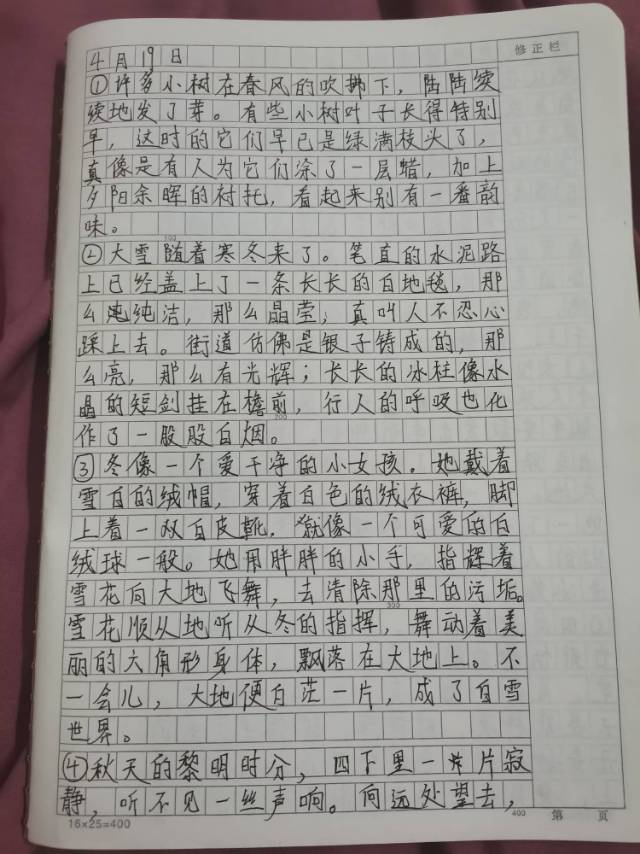 修正栏
4月19日
①许多小树在春风的吹拂下，陆陆续
续地发了芽。有些小树叶子长得特别
早，这时的它们早已是绿满枝头了，
真像是有人为它们涂了一层蜡，加上
夕阳余晖的衬托，看起来别有一番韵
味。
100
②大雪随着寒冬来了。笔直的水泥路
上已经盖上了一条长长的白地毯，那
么纯洁，那么晶莹，真叫人不忍心
踩上去。街道仿佛是银子铸成的，那
么亮，那么有光辉；长长的冰柱像水
晶的短剑挂在檐前，行人的呼吸也化
200
作了一股股白烟。
③冬像一个爱干净的小女孩。她戴着
雪白的绒帽，穿着白色的绒衣裤，脚
上着一双白皮靴，就像一个可爱的白
绒球一般。她用胖胖的小手，指辉着
雪花向大地飞舞，去清除那里的污垢。
300
雪花顺从地听从冬的指挥，舞动着美
丽的六角形身体，飘落在大地上。不
一会儿，大地便白茫一片，成了白雪
世界。
④秋天的黎明时分，四下里一片寂
静，听不见一丝声响。向远处望去，
16×25=400
400
第 页